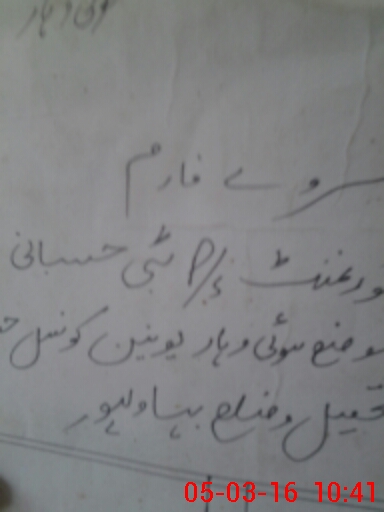 سروے فارم
ورنمنٹ P/s بٹی حسبانی
موضع سوئی وہار یونین کونسل
تحصیل و ضلع بہاولپور
05-03-16 10:41